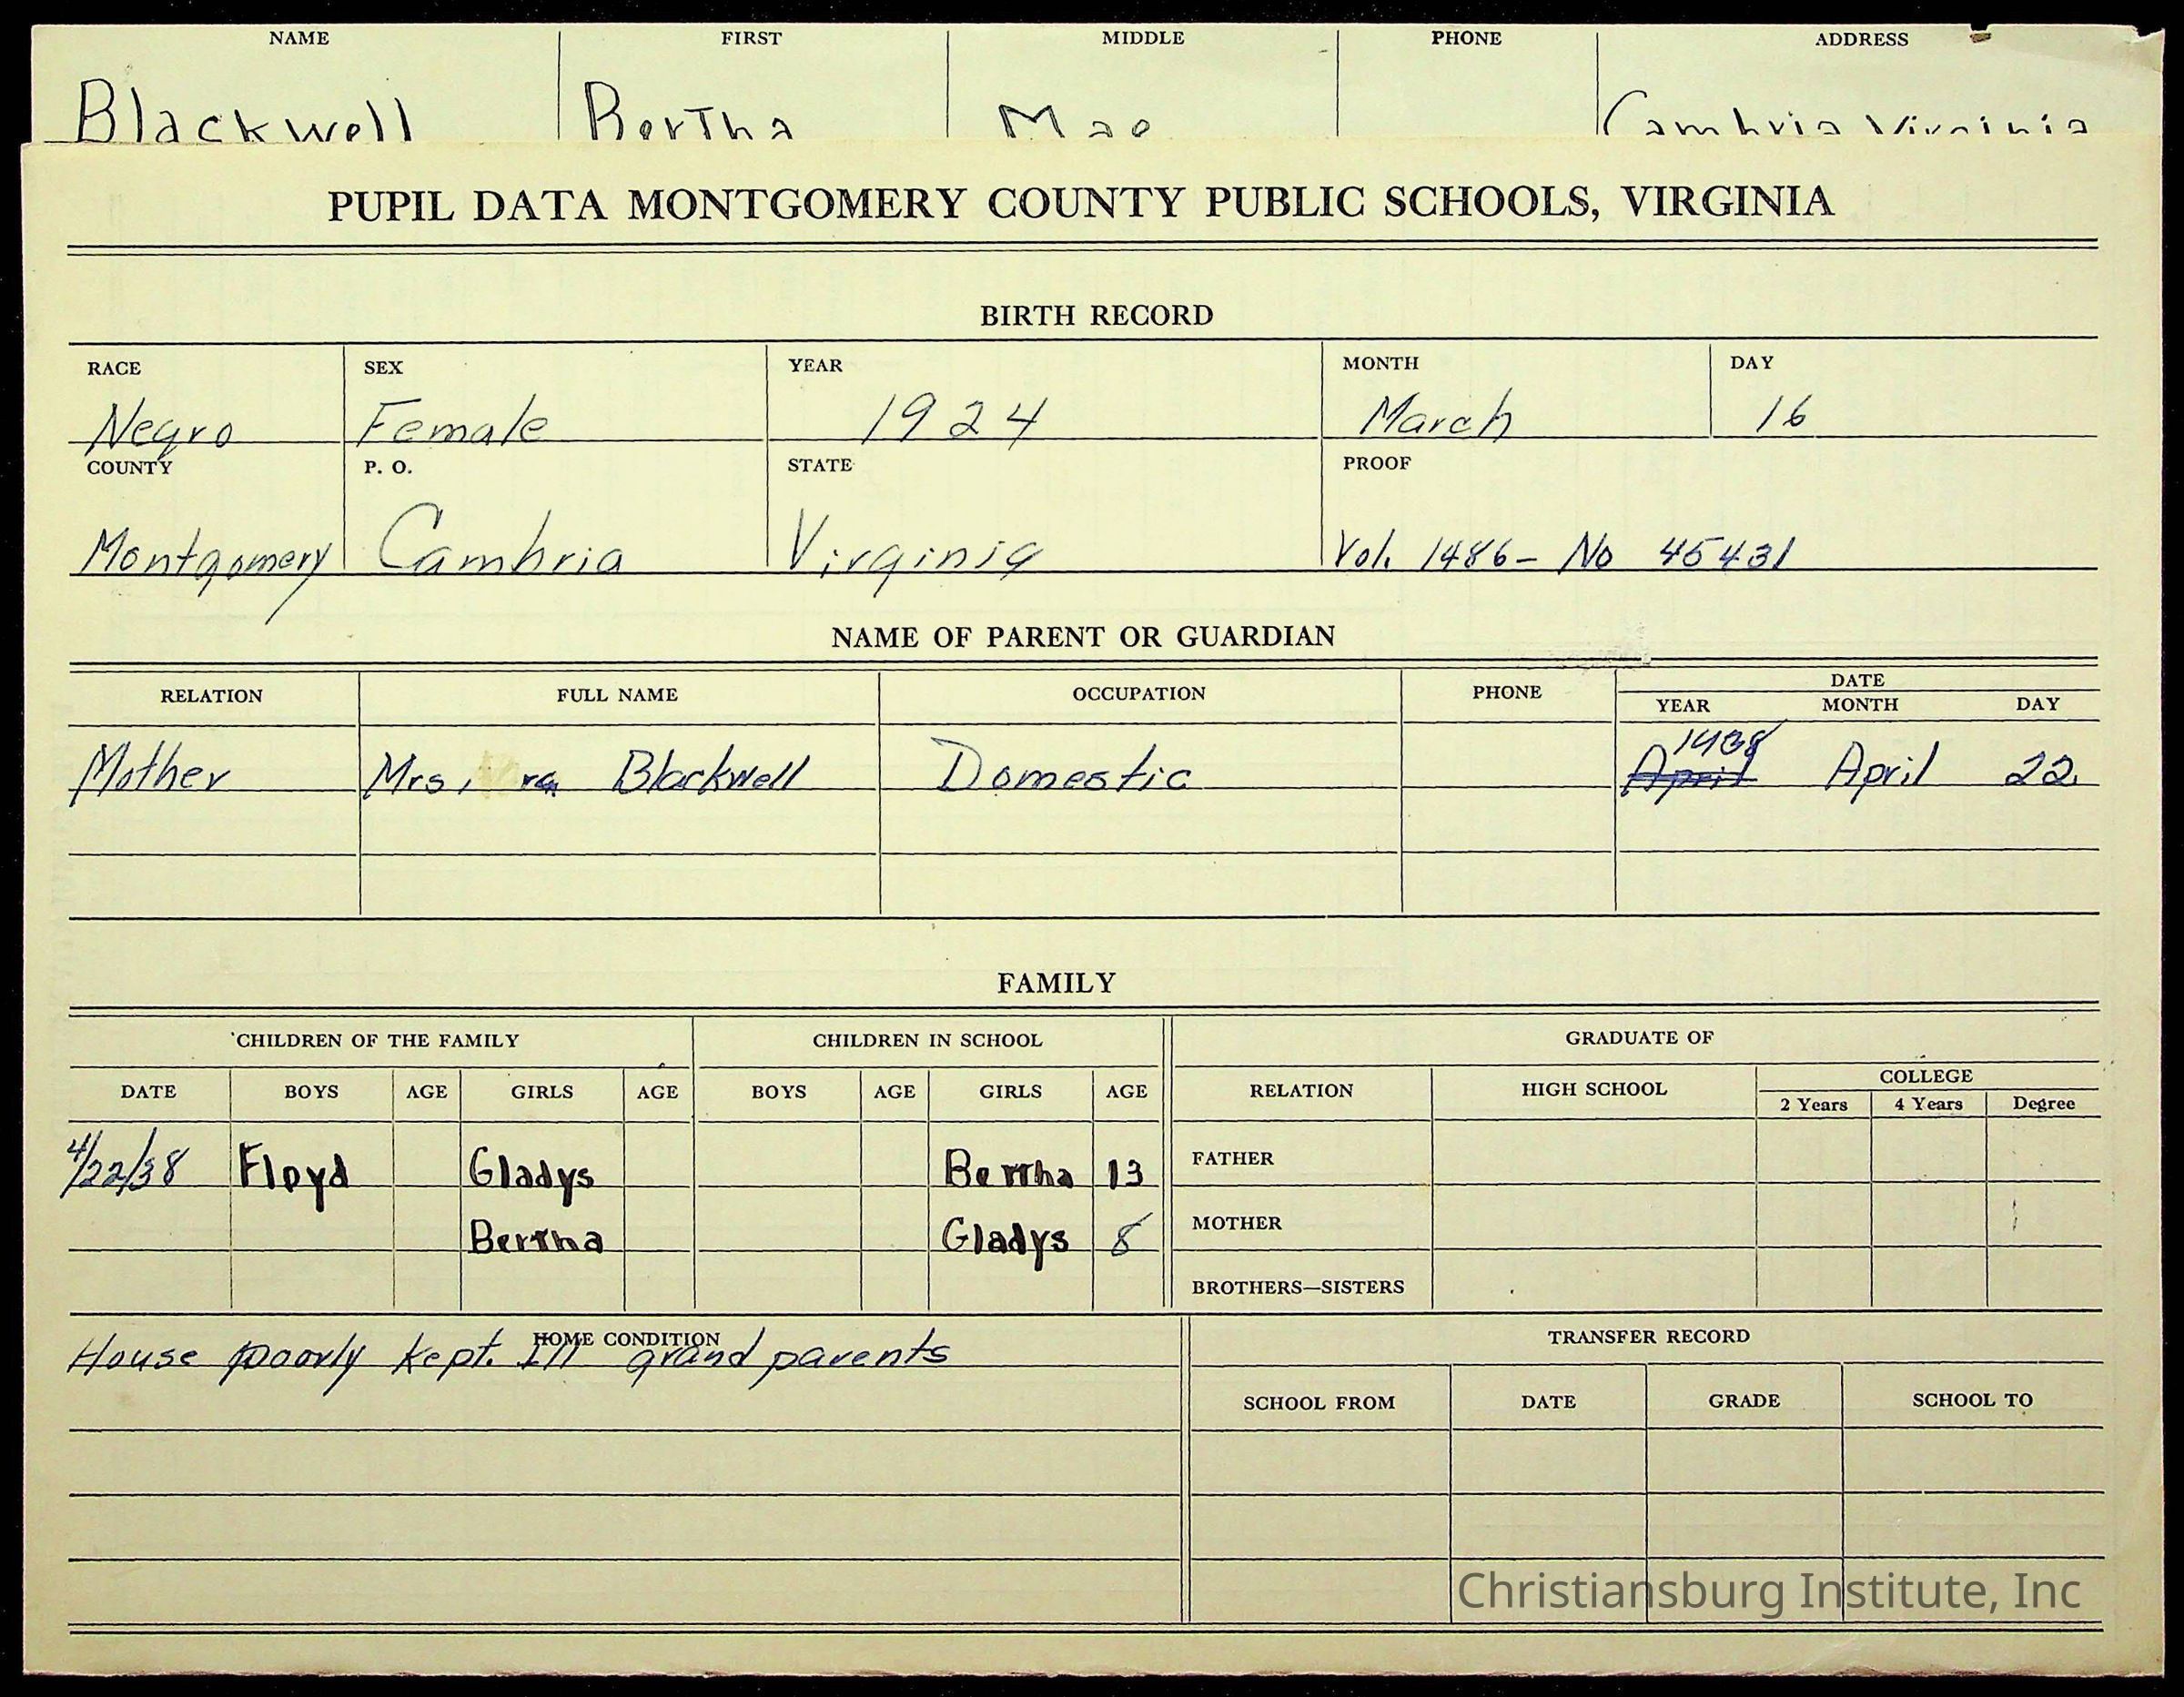 NAME FIRST MIDDLE PHONE ADDRESS
Blackwell Bertha Mae Cambria Virginia
PUPIL DATA MONTGOMERY COUNTY PUBLIC SCHOOLS, VIRGINIA
BIRTH RECORD
RACE SEX YEAR MONTH DAY
Negro Female 1924 March 16
COUNTY P. O. STATE PROOF
Montgomery Cambria Virginia Vol. 1486- No 45431
NAME OF PARENT OR GUARDIAN
RELATION FULL NAME OCCUPATION PHONE DATE
YEAR MONTH DAY
1938
Mother Mrs. Blackwell Domestic April April 22
FAMILY
CHILDREN OF THE FAMILY CHILDREN IN SCHOOL GRADUATE OF
DATE BOYS AGE GIRLS AGE BOYS AGE GIRLS AGE RELATION HIGH SCHOOL COLLEGE
2 Years 4 Years Degree
4/22/38 Floyd Gladys Bertha 13 FATHER
Bertha Gladys 8 MOTHER
BROTHERS—SISTERS
HOME CONDITION TRANSFER RECORD
House poorly kept. Ill grand parents
SCHOOL FROM DATE GRADE SCHOOL TO
Christiansburg Institute, Inc